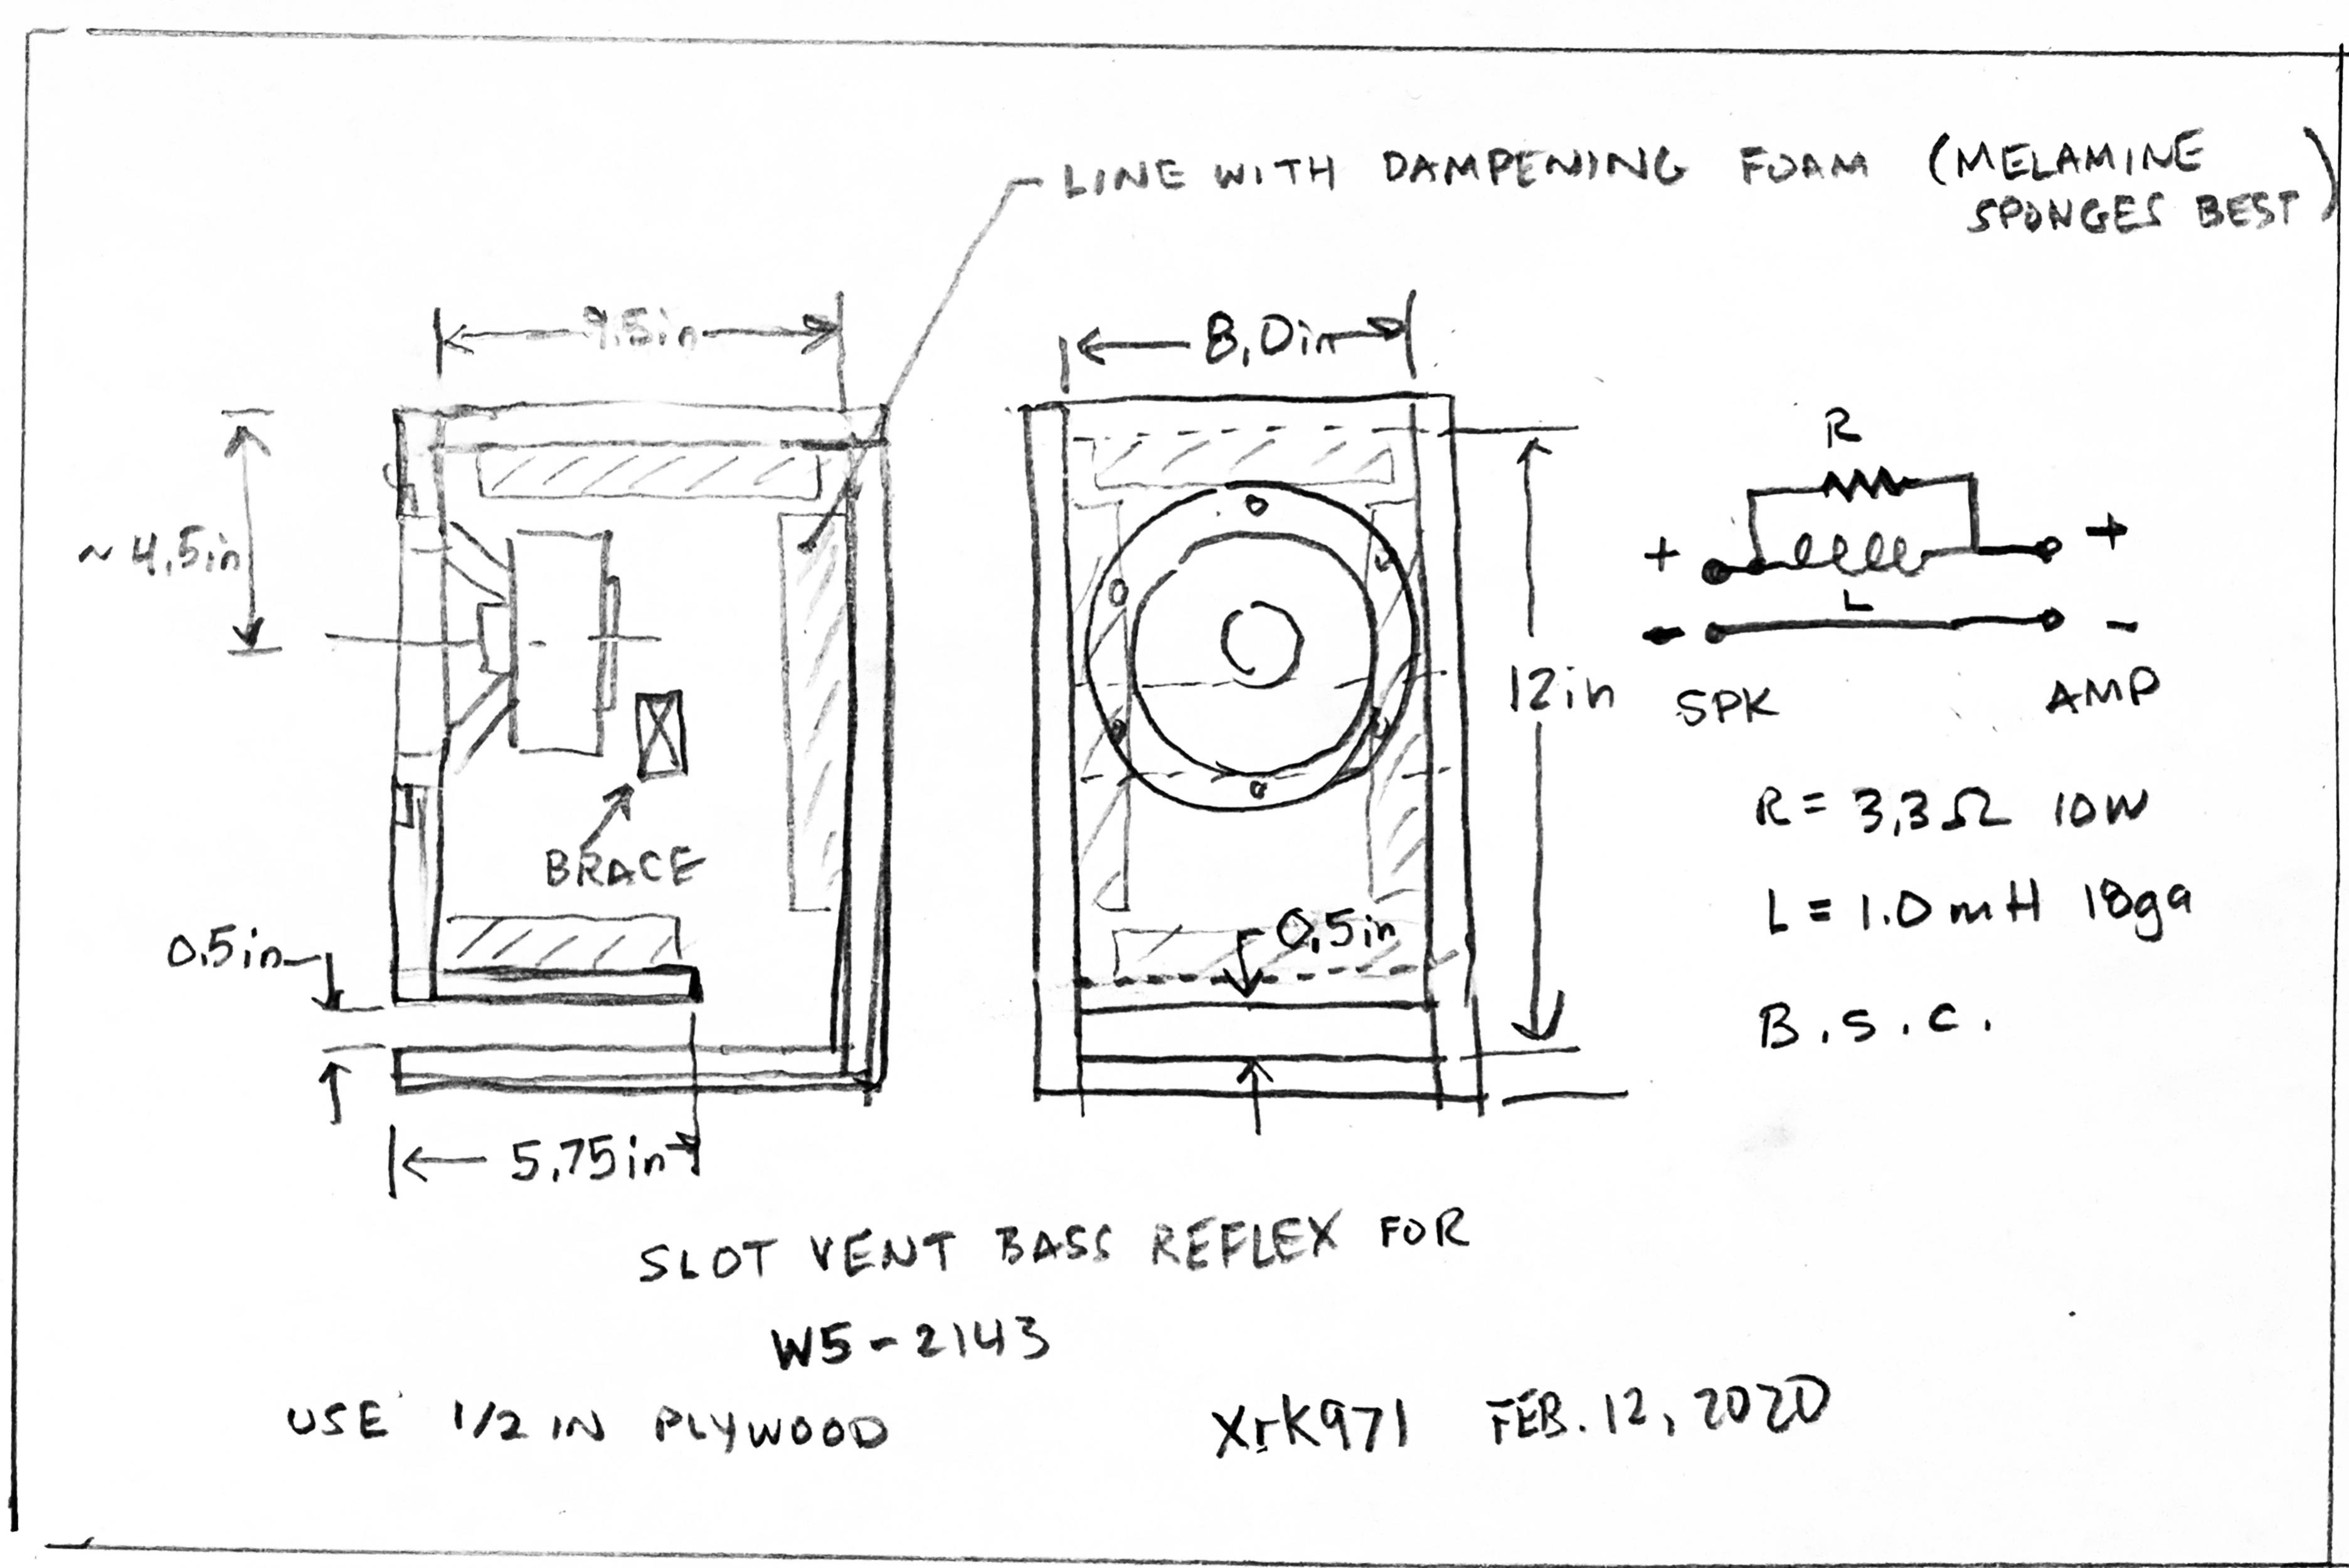 LINE WITH DAMPENING FOAM (MELAMINE
SPONGES BEST)
9.5in
8.0in
~4.5in
12in
BRACE
0.5in
0.5in
5.75in
R
+ +
L
- -
SPK AMP
R = 3.3Ω 10W
L = 1.0mH 18ga
B.S.C.
SLOT VENT BASS REFLEX FOR
W5-2143
USE 1/2 IN PLYWOOD
XrK971 FEB. 12, 2020